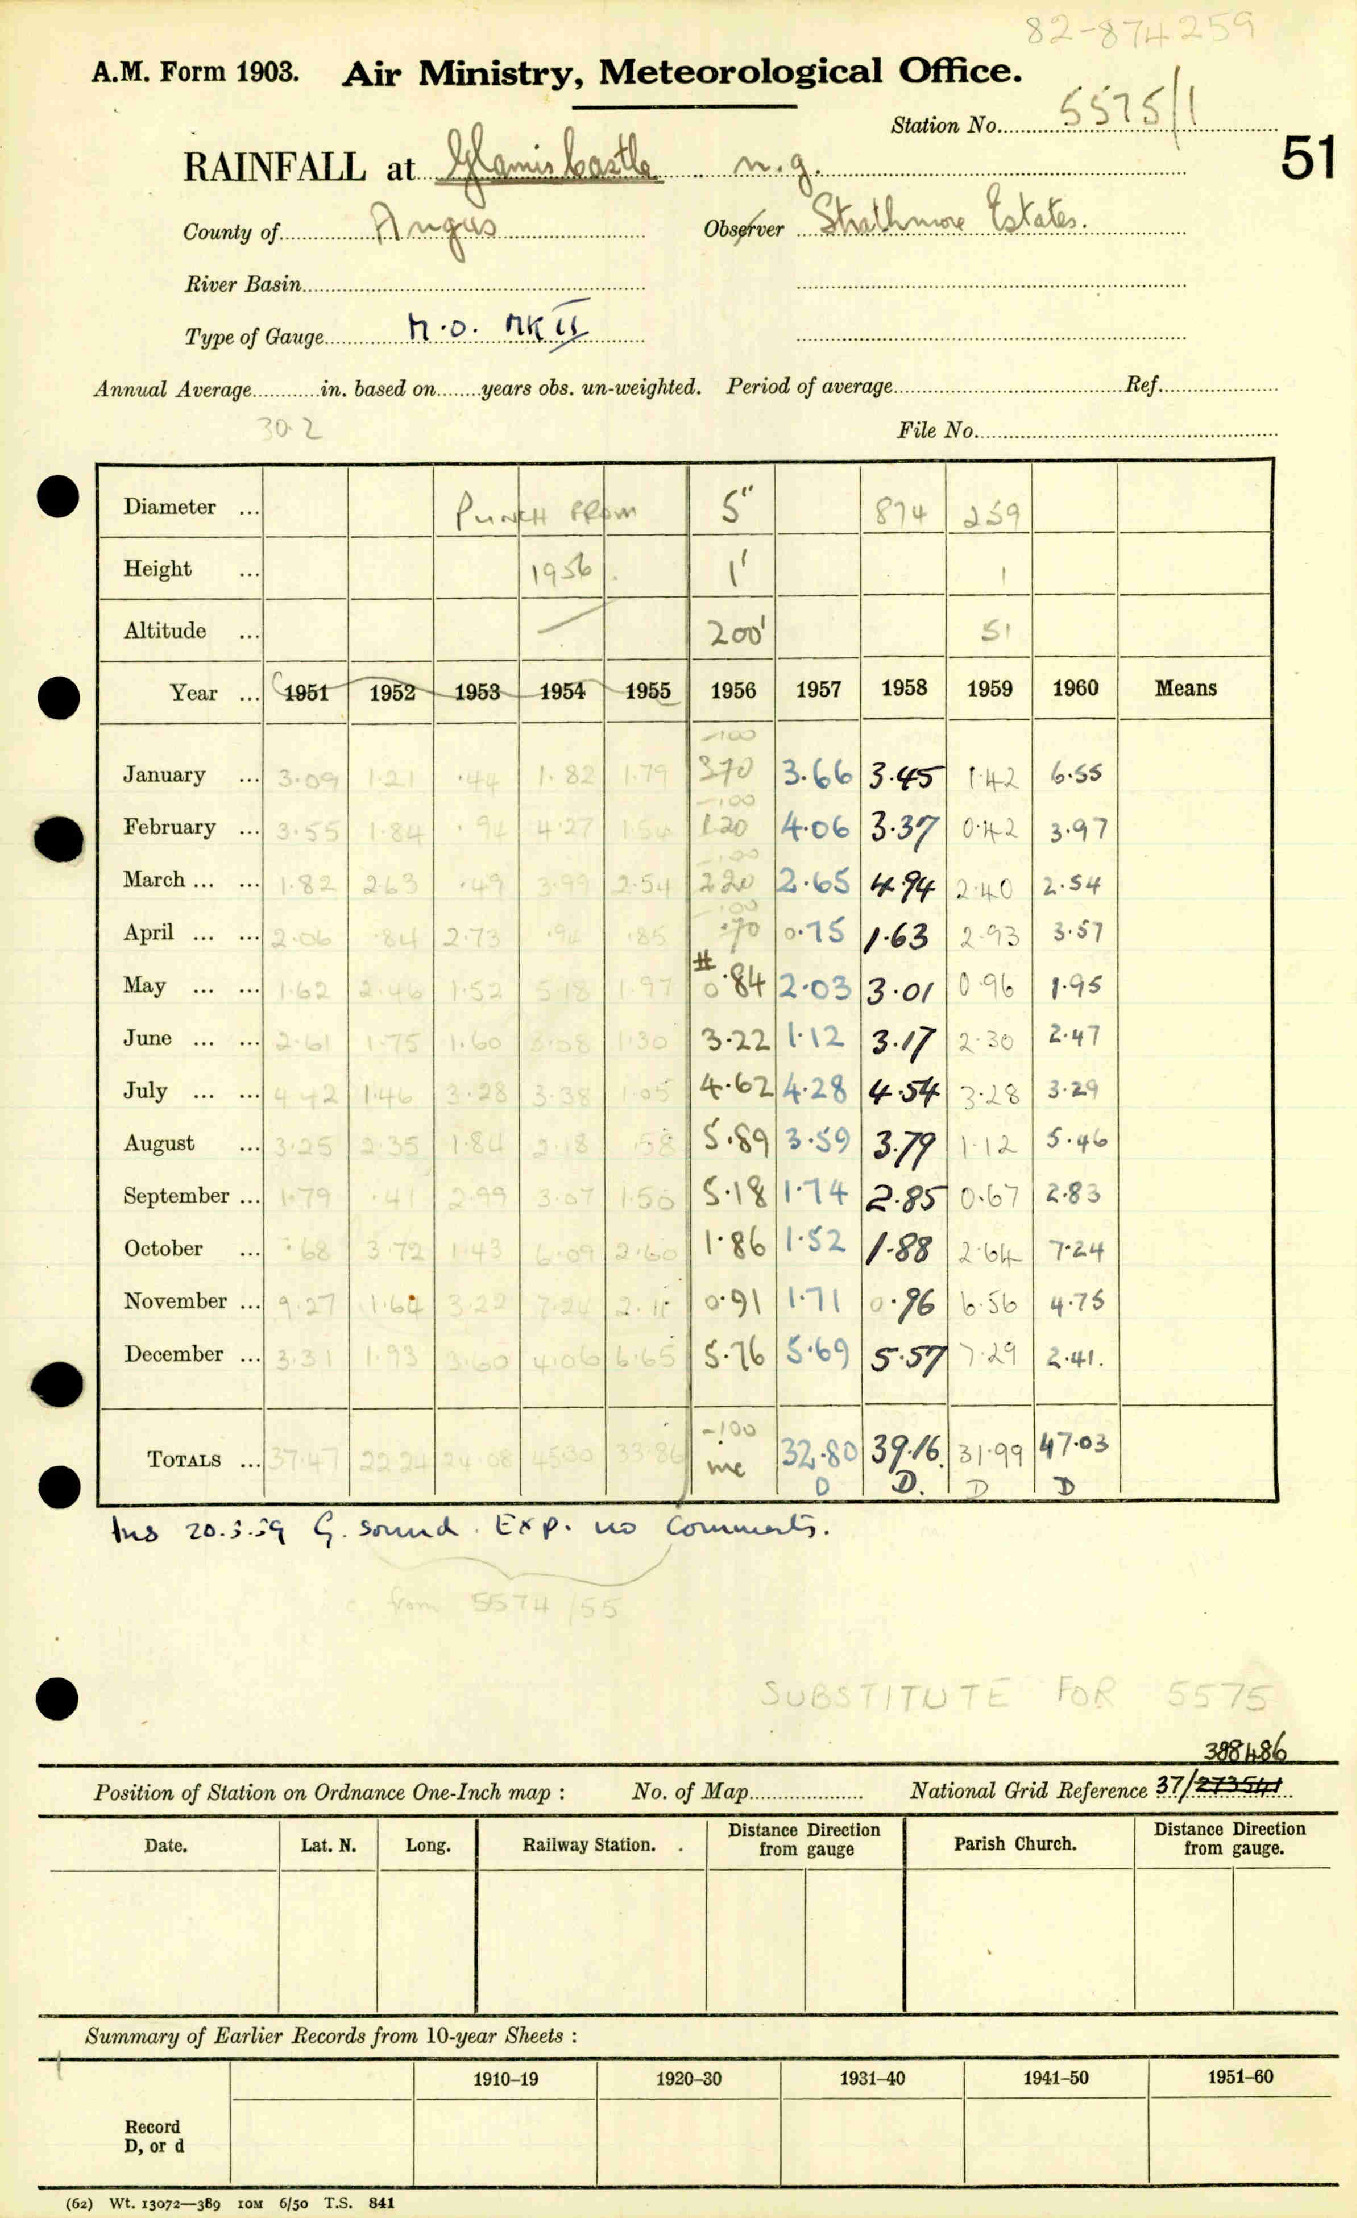 82-874259
A.M. Form 1903. Air Ministry, Meteorological Office.
Station No. 5575/1
51
RAINFALL at Glamis Castle n.g.
County of Angus Observer Strathmore Estates.
River Basin
Type of Gauge M.O. MK II
Annual Average in. based on years obs. un-weighted. Period of average Ref.
30.2
File No.
Diameter ... PUNCH FROM 5" 874 259
Height ... 1956. 1' 1
Altitude ... 200' 51
Year ... 1951 1952 1953 1954 1955 1956 1957 1958 1959 1960 Means
-100
January ... 3.09 1.21 .44 1.82 1.79 370 3.66 3.45 1.42 6.55
-100
February ... 3.55 1.84 .94 4.27 1.54 120 4.06 3.37 0.42 3.97
-100
March ... ... 1.82 2.63 .49 3.99 2.54 220 2.65 4.94 2.40 2.54
-100
April ... ... 2.06 .84 2.73 .94 .85 .70 0.75 1.63 2.93 3.57
#
May ... ... 1.62 2.46 1.52 5.18 1.97 0.84 2.03 3.01 0.96 1.95
June ... ... 2.61 1.75 1.60 3.08 1.30 3.22 1.12 3.17 2.30 2.47
July ... ... 4.42 1.46 3.28 3.38 1.05 4.62 4.28 4.54 3.28 3.29
August ... 3.25 2.35 1.84 2.18 .58 5.89 3.59 3.79 1.12 5.46
September ... 1.79 .41 2.99 3.07 1.50 5.18 1.74 2.85 0.67 2.83
October ... .68 3.72 1.43 6.09 2.60 1.86 1.52 1.88 2.64 7.24
November ... 9.27 1.64 3.22 7.24 2.11 0.91 1.71 0.96 6.56 4.75
December ... 3.31 1.93 3.60 4.06 6.65 5.76 5.69 5.57 7.29 2.41.
-100
TOTALS ... 37.47 22.24 24.08 45.30 33.86 mc 32.80 39.16. 31.99 47.03
D D. D D
Ins 20.5.59 G. sound. Exp. no comments.
from 5574/55
SUBSTITUTE FOR 5575
388486
Position of Station on Ordnance One-Inch map : No. of Map National Grid Reference 37/273541
Date. Lat. N. Long. Railway Station. Distance from Direction gauge Parish Church. Distance from Direction gauge.
Summary of Earlier Records from 10-year Sheets :
1910–19 1920–30 1931–40 1941–50 1951–60
Record
D, or d
(62) Wt. 13072—389 10M 6/50 T.S. 841